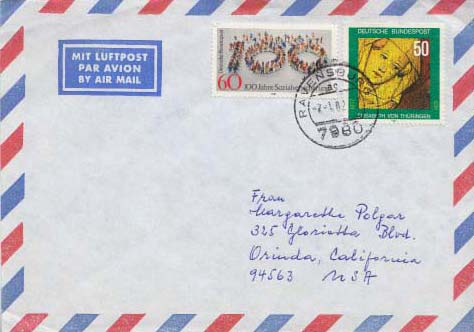 MIT LUFTPOST
PAR AVION
BY AIR MAIL
Deutsche Bundespost
60
100 Jahre
DEUTSCHE BUNDESPOST
50
ELISABETH VON THÜRINGEN
RAVENSBURG
7980
Frau
Margarethe Polgar
325 Glorietta Blvd.
Orinda, California
94563 USA